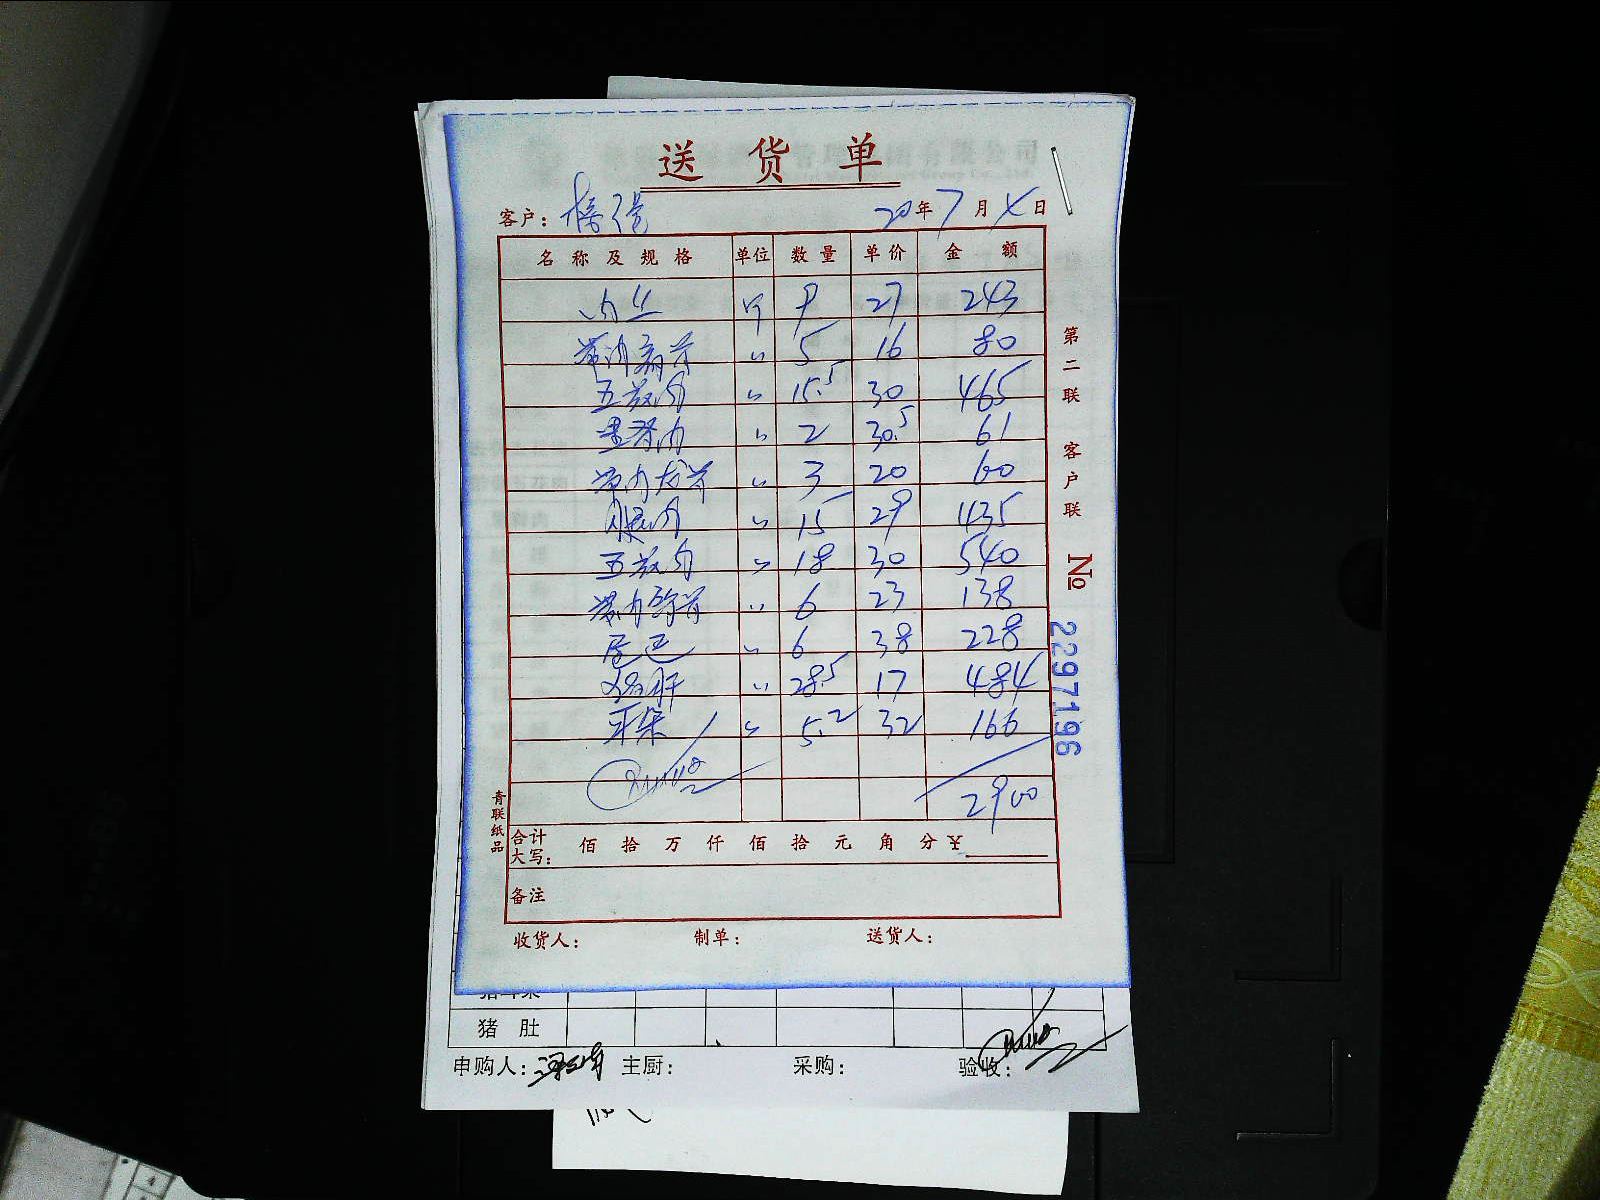 送货单
客户： 20年7月4日
名称及规格 单位 数量 单价 金额
肉丝 斤 9 27 243
带肉扇骨 〃 5 16 80
五花肉 〃 15.5 30 465
里脊肉 〃 2 30.5 61
带肉龙骨 〃 3 20 60
腿肉 〃 15 29 435
五花肉 〃 18 30 540
带肉 骨 〃 6 23 138
尾巴 〃 6 38 228
猪肝 〃 28.5 17 484
耳朵 〃 5.2 32 166
2900
合计大写： 佰 拾 万 仟 佰 拾 元 角 分 ¥
备注
收货人： 制单： 送货人：
第二联 客户联
No 2297196
青联纸品
猪耳朵
猪 肚
申购人： 主厨： 采购： 验收：